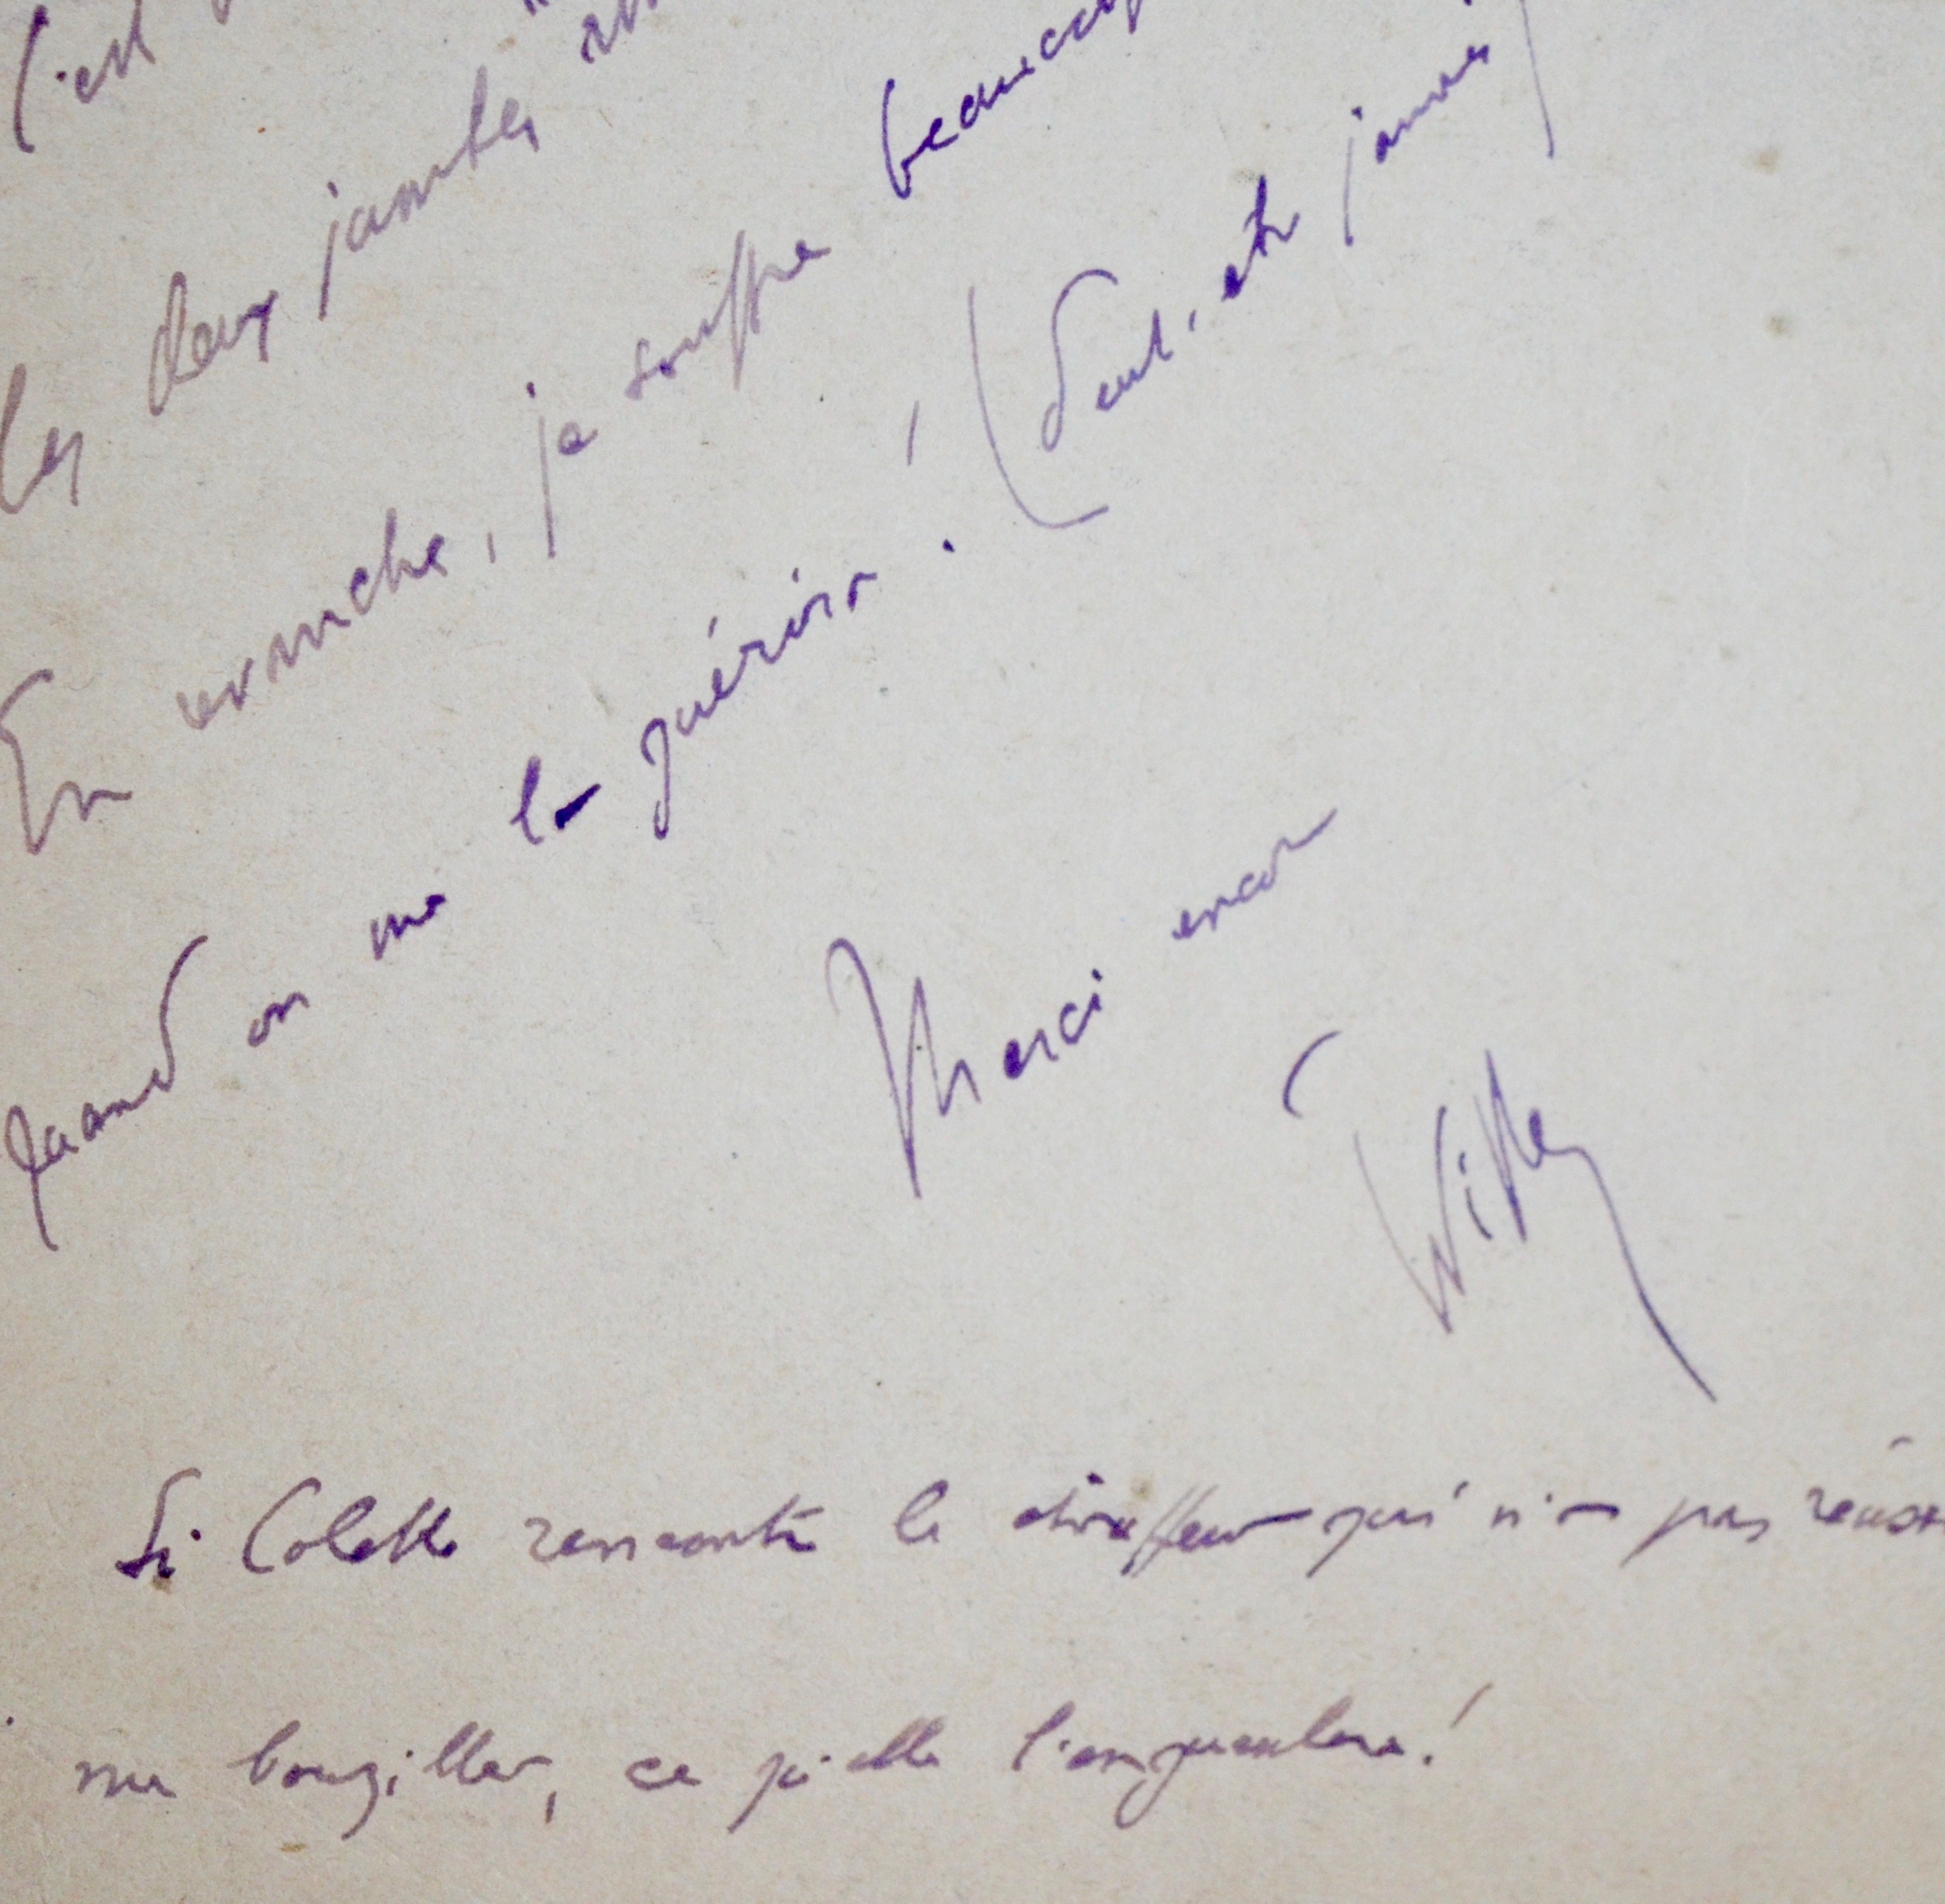 C'est
les deux jambes
En revanche, je souffre beaucoup
Quand on me le guérira ! (Peut-être jamais)
Merci encor
Willy
Si Colette rencontre le chauffeur qui n'a pas réussi
me bouziller, ce qu'elle l'engueulera !